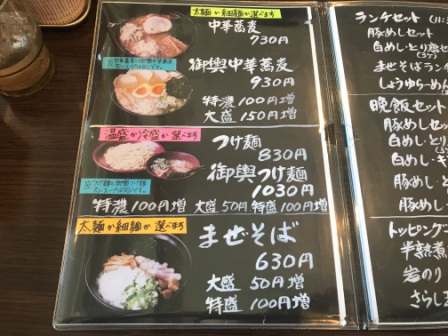 太麺か細麺か選べます
中華蕎麦
930円
御輿中華蕎麦
930円
特濃 100円増
大盛 150円増
温盛か冷盛か選べます
つけ麺
830円
御輿つけ麺
1030円
特濃100円増 大盛50円増 特盛100円増
太麺か細麺か選べます
まぜそば
630円
大盛 50円増
特盛 100円増
ランチセット
豚めしセット
白めし・とり
まぜそばラン
しょうゆらーめん
晩飯セット
豚めしセット
白めし・とり
白めし・ギ
豚めし・と
豚めし・
トッピング
半熟煮
岩のり
さらし